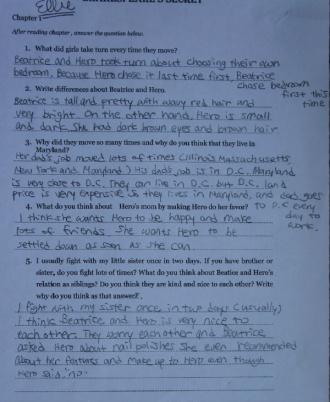 SHAKESPEARE'S SECRET
Ellie
Chapter 1
After reading chapter, answer the question below.
1. What did girls take turn every time they move?
Beatrice and Hero took turn about choosing their own
bedroom, Because Hero chose it last time first, Beatrice
chose bedroom
first this
time
2. Write differences about Beatrice and Hero.
Beatrice is tall and pretty with wavy red hair and
very bright On the other hand, Hero is small
and dark. She had dark brown eyes and brown hair
3. Why did they move so many times and why do you think that they live in
Maryland?
Her dad's job moved lots of times (Illinois Massachusetts,
New York and Maryland) His dad's job is in D.C. Maryland
is very close to D.C. They can live in D.C. but D.C. land
price is very expensive so they lives in Maryland, and dad goes
to D.C every
day to
work.
4. What do you think about Hero's mom by making Hero do her favor?
I think she wants Hero to be happy and make
lots of friends. She wants Hero to be
settled down as soon as she can.
5. I usually fight with my little sister once in two days. If you have brother or
sister, do you fight lots of times? What do you think about Beatice and Hero's
relation as siblings? Do you think they are kind and nice to each other? Write
why do you think as that answer?,
I fight with my sister once in two days (usually)
I think Beatrice and Hero is very nice to
each other. They worry each other and Beatrice
asked Hero about nail polishes She even recommended
about her features and make up to Hero even though
Hero said "no."